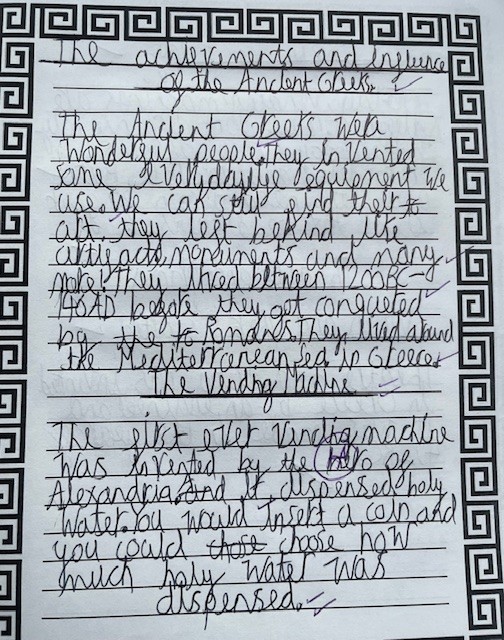 The achievements and Influence
of the Ancient Greeks.
The Ancient Greeks were
wonderful people. They Invented
some everyday life equipment we
use. We can still find their
art. they left behind like
artifacts, monuments and many
more! They lived between 1200BC-
146AD before they got conquered
by the Romans. They lived around
the Mediterranean Sea in Greece.
The Vending Machine
The first ever vending machine
was invented by the hero of
Alexandria. And it dispensed holy
water. You would Insert a coin and
you could chose choose how
much holy water was
dispensed.